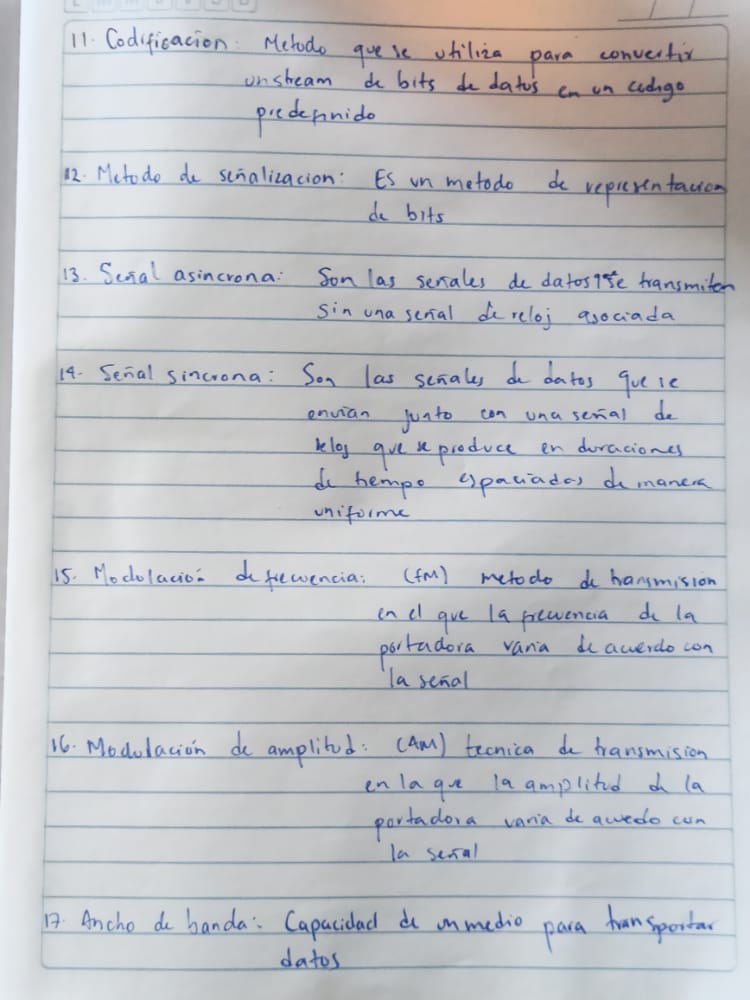 11. Codificacion: Metodo que se utiliza para convertir
un stream de bits de datos en un codigo
predefinido
12. Metodo de señalizacion: Es un metodo de representacion
de bits
13. Señal asincrona: Son las señales de datos que se transmiten
sin una señal de reloj asociada
14. Señal sincrona: Son las señales de datos que se
envian junto con una señal de
reloj que se produce en duraciones
de tiempo espaciadas de manera
uniforme
15. Modulación de frecuencia: (FM) metodo de transmision
en el que la frecuencia de la
portadora varia de acuerdo con
la señal
16. Modulación de amplitud: (AM) tecnica de transmision
en la que la amplitud de la
portadora varia de acuedo con
la señal
17. Ancho de banda: Capacidad de un medio para transportar
datos